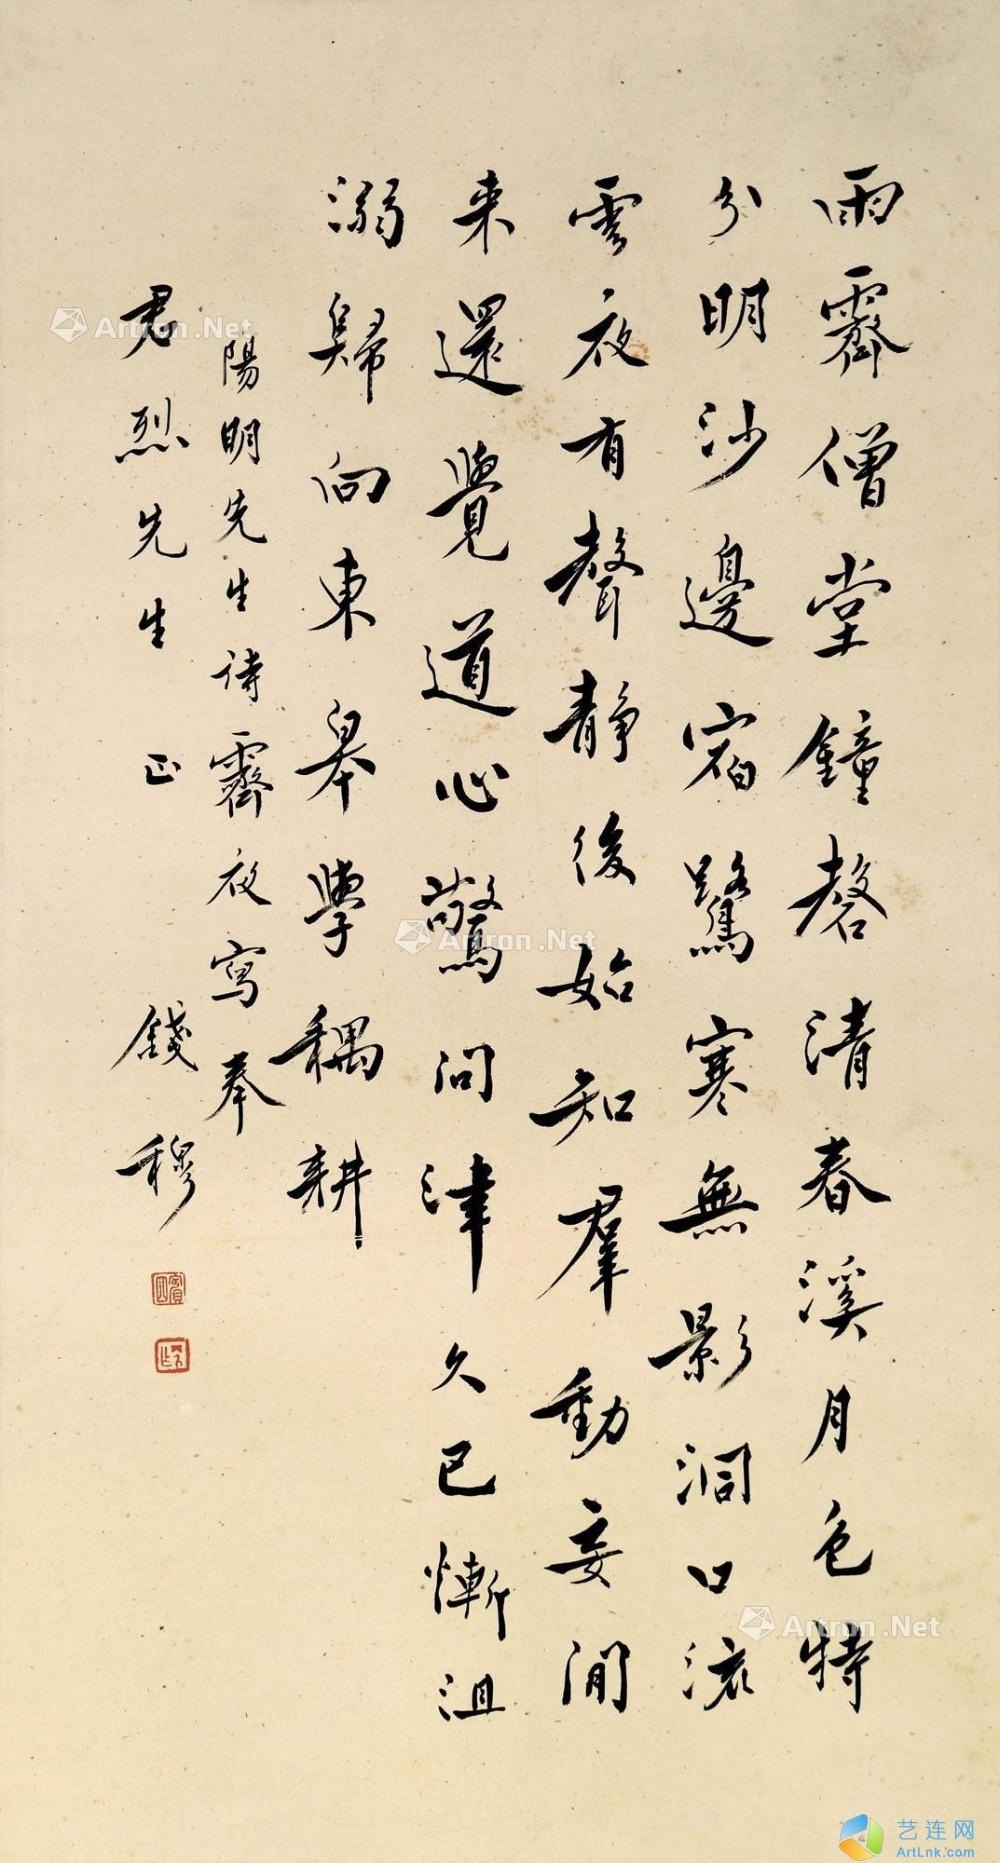 雨霽僧堂鐘磬清春溪月色特
分明沙邊宿鷺寒無影洞口流
雲夜有聲靜後始知羣動妄閒
来還覺道心驚問津久已慚沮
溺歸向東皋學耦耕
陽明先生詩霽夜寫奉
君烈先生 正 錢穆
Artron.Net
Artron.Net
Artron.Net
艺连网
ArtLnk.com